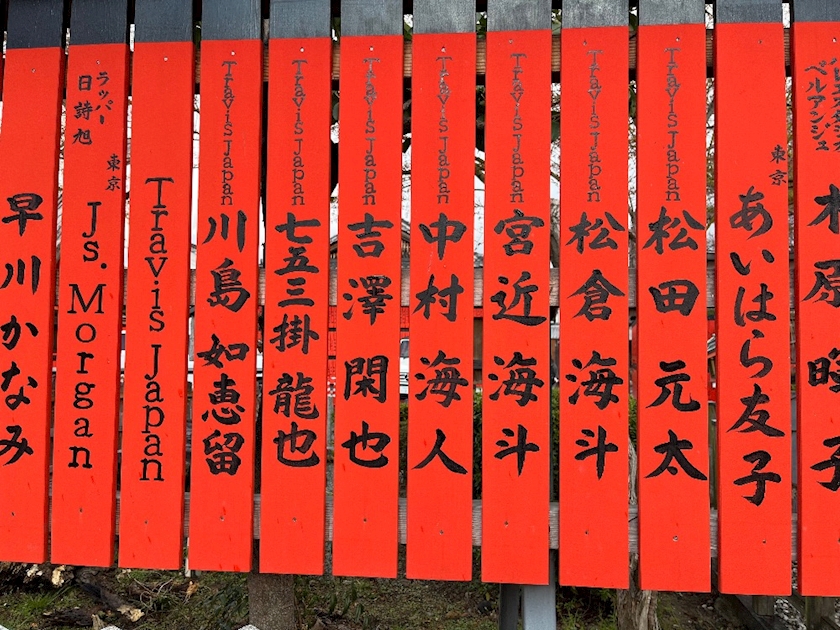 早川かなみ
ラッパー
日詩旭
東京
Js. Morgan
Travis Japan
Travis Japan
川島 如恵留
Travis Japan
七五三掛 龍也
Travis Japan
吉澤 閑也
Travis Japan
中村 海人
Travis Japan
宮近 海斗
Travis Japan
松倉 海斗
Travis Japan
松田 元太
東京
あいはら友子
ベルアンジュ